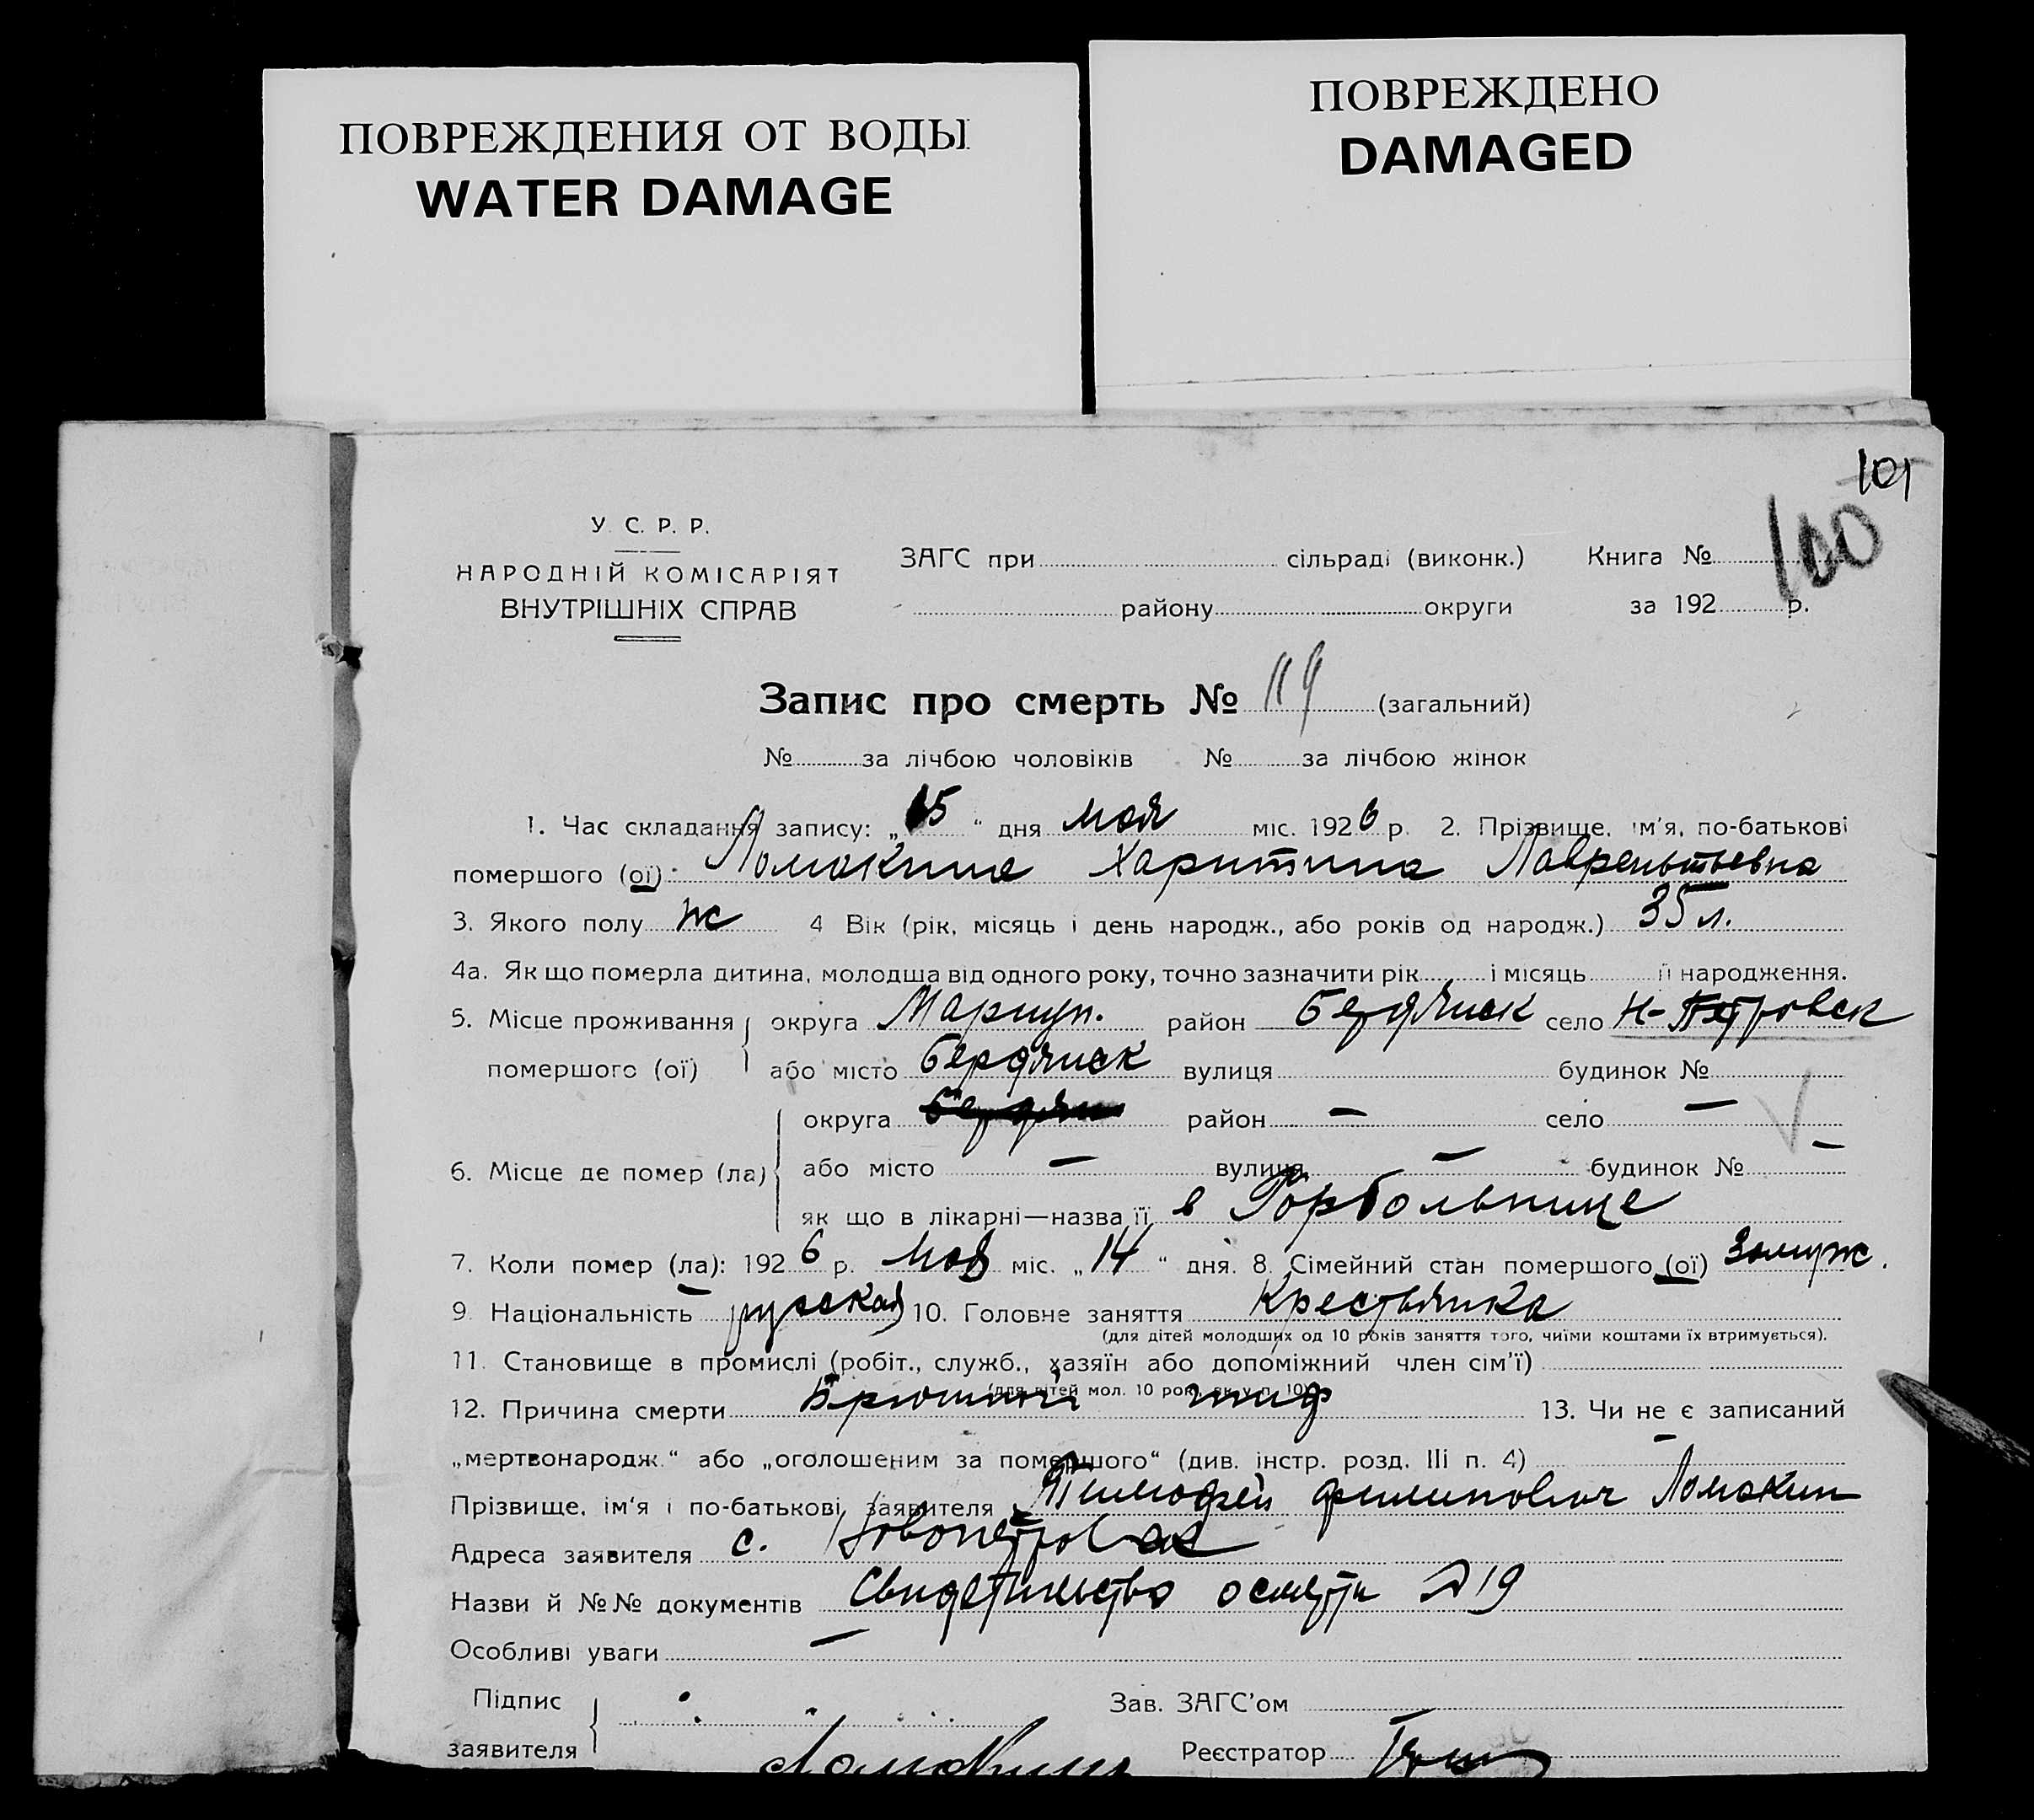 ПОВРЕЖДЕНИЯ ОТ ВОДЫ
WATER DAMAGE
ПОВРЕЖДЕНО
DAMAGED
101
100
У. С. Р. Р.
НАРОДНІЙ КОМІСАРІЯТ
ВНУТРІШНІХ СПРАВ
ЗАГС при сільраді (виконк.) Книга №
району округи за 192 р.
Запис про смерть № 119 (загальний)
№ за лічбою чоловіків № за лічбою жінок
1. Час складання запису: „15“ дня мая міс. 1926 р. 2. Прізвище, ім'я, по-батькові
помершого (ої): Ломакина Харитина Лаврентьевна
3. Якого полу ж 4 Вік (рік, місяць і день народж., або років од народж.) 35 л.
4а. Як що померла дитина, молодша від одного року, точно зазначити рік і місяць її народження.
5. Місце проживання округа Мариуп. район Бердянск село Н-Петровск
помершого (ої) або місто Бердянск вулиця будинок №
округа Бердян район — село —
6. Місце де помер (ла) або місто — вулиця — будинок № —
як що в лікарні—назва її в Горбольнице
7. Коли помер (ла): 1926 р. мая міс. „14“ дня. 8. Сімейний стан помершого (ої) замуж.
9. Національність русская 10. Головне заняття Крестьянка
(для дітей молодших од 10 років заняття того, чиїми коштами їх втримується).
11. Становище в промислі (робіт., служб., хазяїн або допоміжний член сім'ї)
(для дітей мол. 10 рок. як у п. 10)
12. Причина смерти Брюшной тиф 13. Чи не є записаний
„мертвонародж.“ або „оголошеним за помершого“ (див. інстр. розд. III п. 4) —
Прізвище, ім'я і по-батькові заявителя Тимофей Филипович Ломакин
Адреса заявителя с. Новопетровка
Назви й №№ документів Свидетельство о смерти №19
Особливі уваги —
Підпис Зав. ЗАГС'ом
заявителя Ломакин Реєстратор